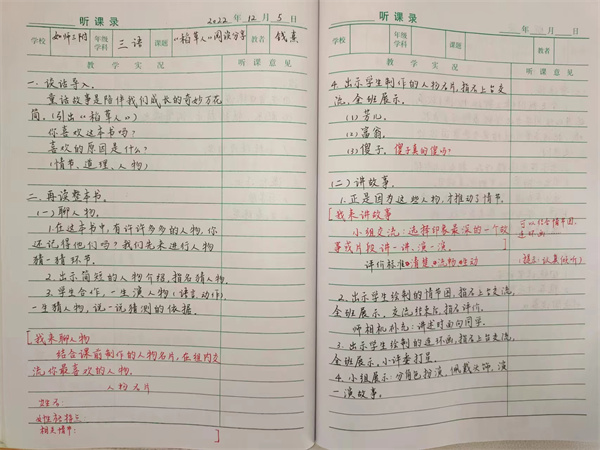 听课录
2022年12月5日
学校 如师三附 年级学科 三语 课题 《稻草人》阅读分享 教者
教学实况 听课意见
一、谈话导入。
童话故事是陪伴我们成长的奇妙万花
筒。(引出《稻草人》)
你喜欢这本书吗?
喜欢的原因是什么?
(情节、道理、人物)
二、再读整本书。
(一)聊人物。
1.在这本书中,有许许多多的人物,你
还记得他们吗?我们先来进行人物
猜一猜环节。
2.出示简短的人物介绍,指名猜人物。
3.学生合作,一生演人物(语言、动作),
一生猜人物,说一说猜测的依据。
[我来聊人物
结合课前制作的人物名片,在组内交
流你最喜欢的人物。
人物名片
姓名:
性格特点:
相关情节: ]
听课录
年 月 日
学校 年级学科 课题 教者
教学实况 听课意见
4.出示学生制作的人物名片,指名上台交
流,全班展示。
(1)芳儿。
(2)富翁。
(3)傻子。傻子真的傻吗?
(二)讲故事。
1.正是因为这些人物,才推动了情节。
[我来讲故事
小组交流:选择印象最深的一个故
事或片段讲一讲、演一演。]
可以结合情节图、
连环画
评价标准 清楚 流畅 生动
(提示:认真倾听)
2.出示学生绘制的情节图,指名上台交流,
全班展示。交流结束后,指名评价。
师相机补充:讲述时面向同学。
3.出示学生绘制的连环画,指名上台交流,
全班展示,小评委打星。
4.小组展示:分角色扮演,佩戴头饰,演
一演故事。